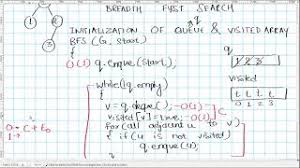 BREADTH FIRST SEARCH
1
2
3
INITIALIZATION OF QUEUE & VISITED ARRAY
BFS (G, Start)
{
O(1) { q.enque (start);
q
1 2 3
while (!q.empty)
{
v = q.deque(); -O(1)
visited [v] = true; -O(1)
for (all adjacent u to v)
{ if (u is not visited)
q.enque (u);
C
visited
t t t t